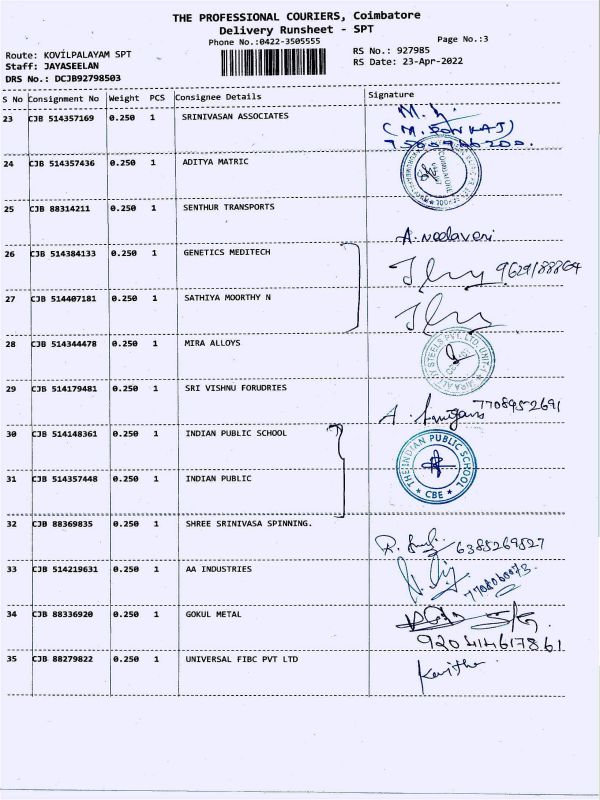 THE PROFESSIONAL COURIERS, Coimbatore
Delivery Runsheet - SPT
Phone No.:0422-3505555
Page No.:3
Route: KOVİLPALAYAM SPT
RS No.: 927985
Staff: JAYASEELAN
RS Date: 23-Apr-2022
DRS No.: DCJB92798503
S No Consignment No Weight PCS Consignee Details Signature
23 CJB 514357169 0.250 1 SRINIVASAN ASSOCIATES
24 CJB 514357436 0.250 1 ADITYA MATRIC
COIMBATORE
25 CJB 88314211 0.250 1 SENTHUR TRANSPORTS
A. neelaveni
26 CJB 514384133 0.250 1 GENETICS MEDITECH
9629188864
27 CJB 514407181 0.250 1 SATHIYA MOORTHY N
28 CJB 514344478 0.250 1 MIRA ALLOYS
STEELS PVT. LTD. UNIT-I
29 CJB 514179481 0.250 1 SRI VISHNU FORUDRIES
7708952691
30 CJB 514148361 0.250 1 INDIAN PUBLIC SCHOOL
THE INDIAN PUBLIC SCHOOL
★ CBE ★
31 CJB 514357448 0.250 1 INDIAN PUBLIC
32 CJB 88369835 0.250 1 SHREE SRINIVASA SPINNING.
6385269827
33 CJB 514219631 0.250 1 AA INDUSTRIES
34 CJB 88336920 0.250 1 GOKUL METAL
35 CJB 88279822 0.250 1 UNIVERSAL FIBC PVT LTD
Kavitha